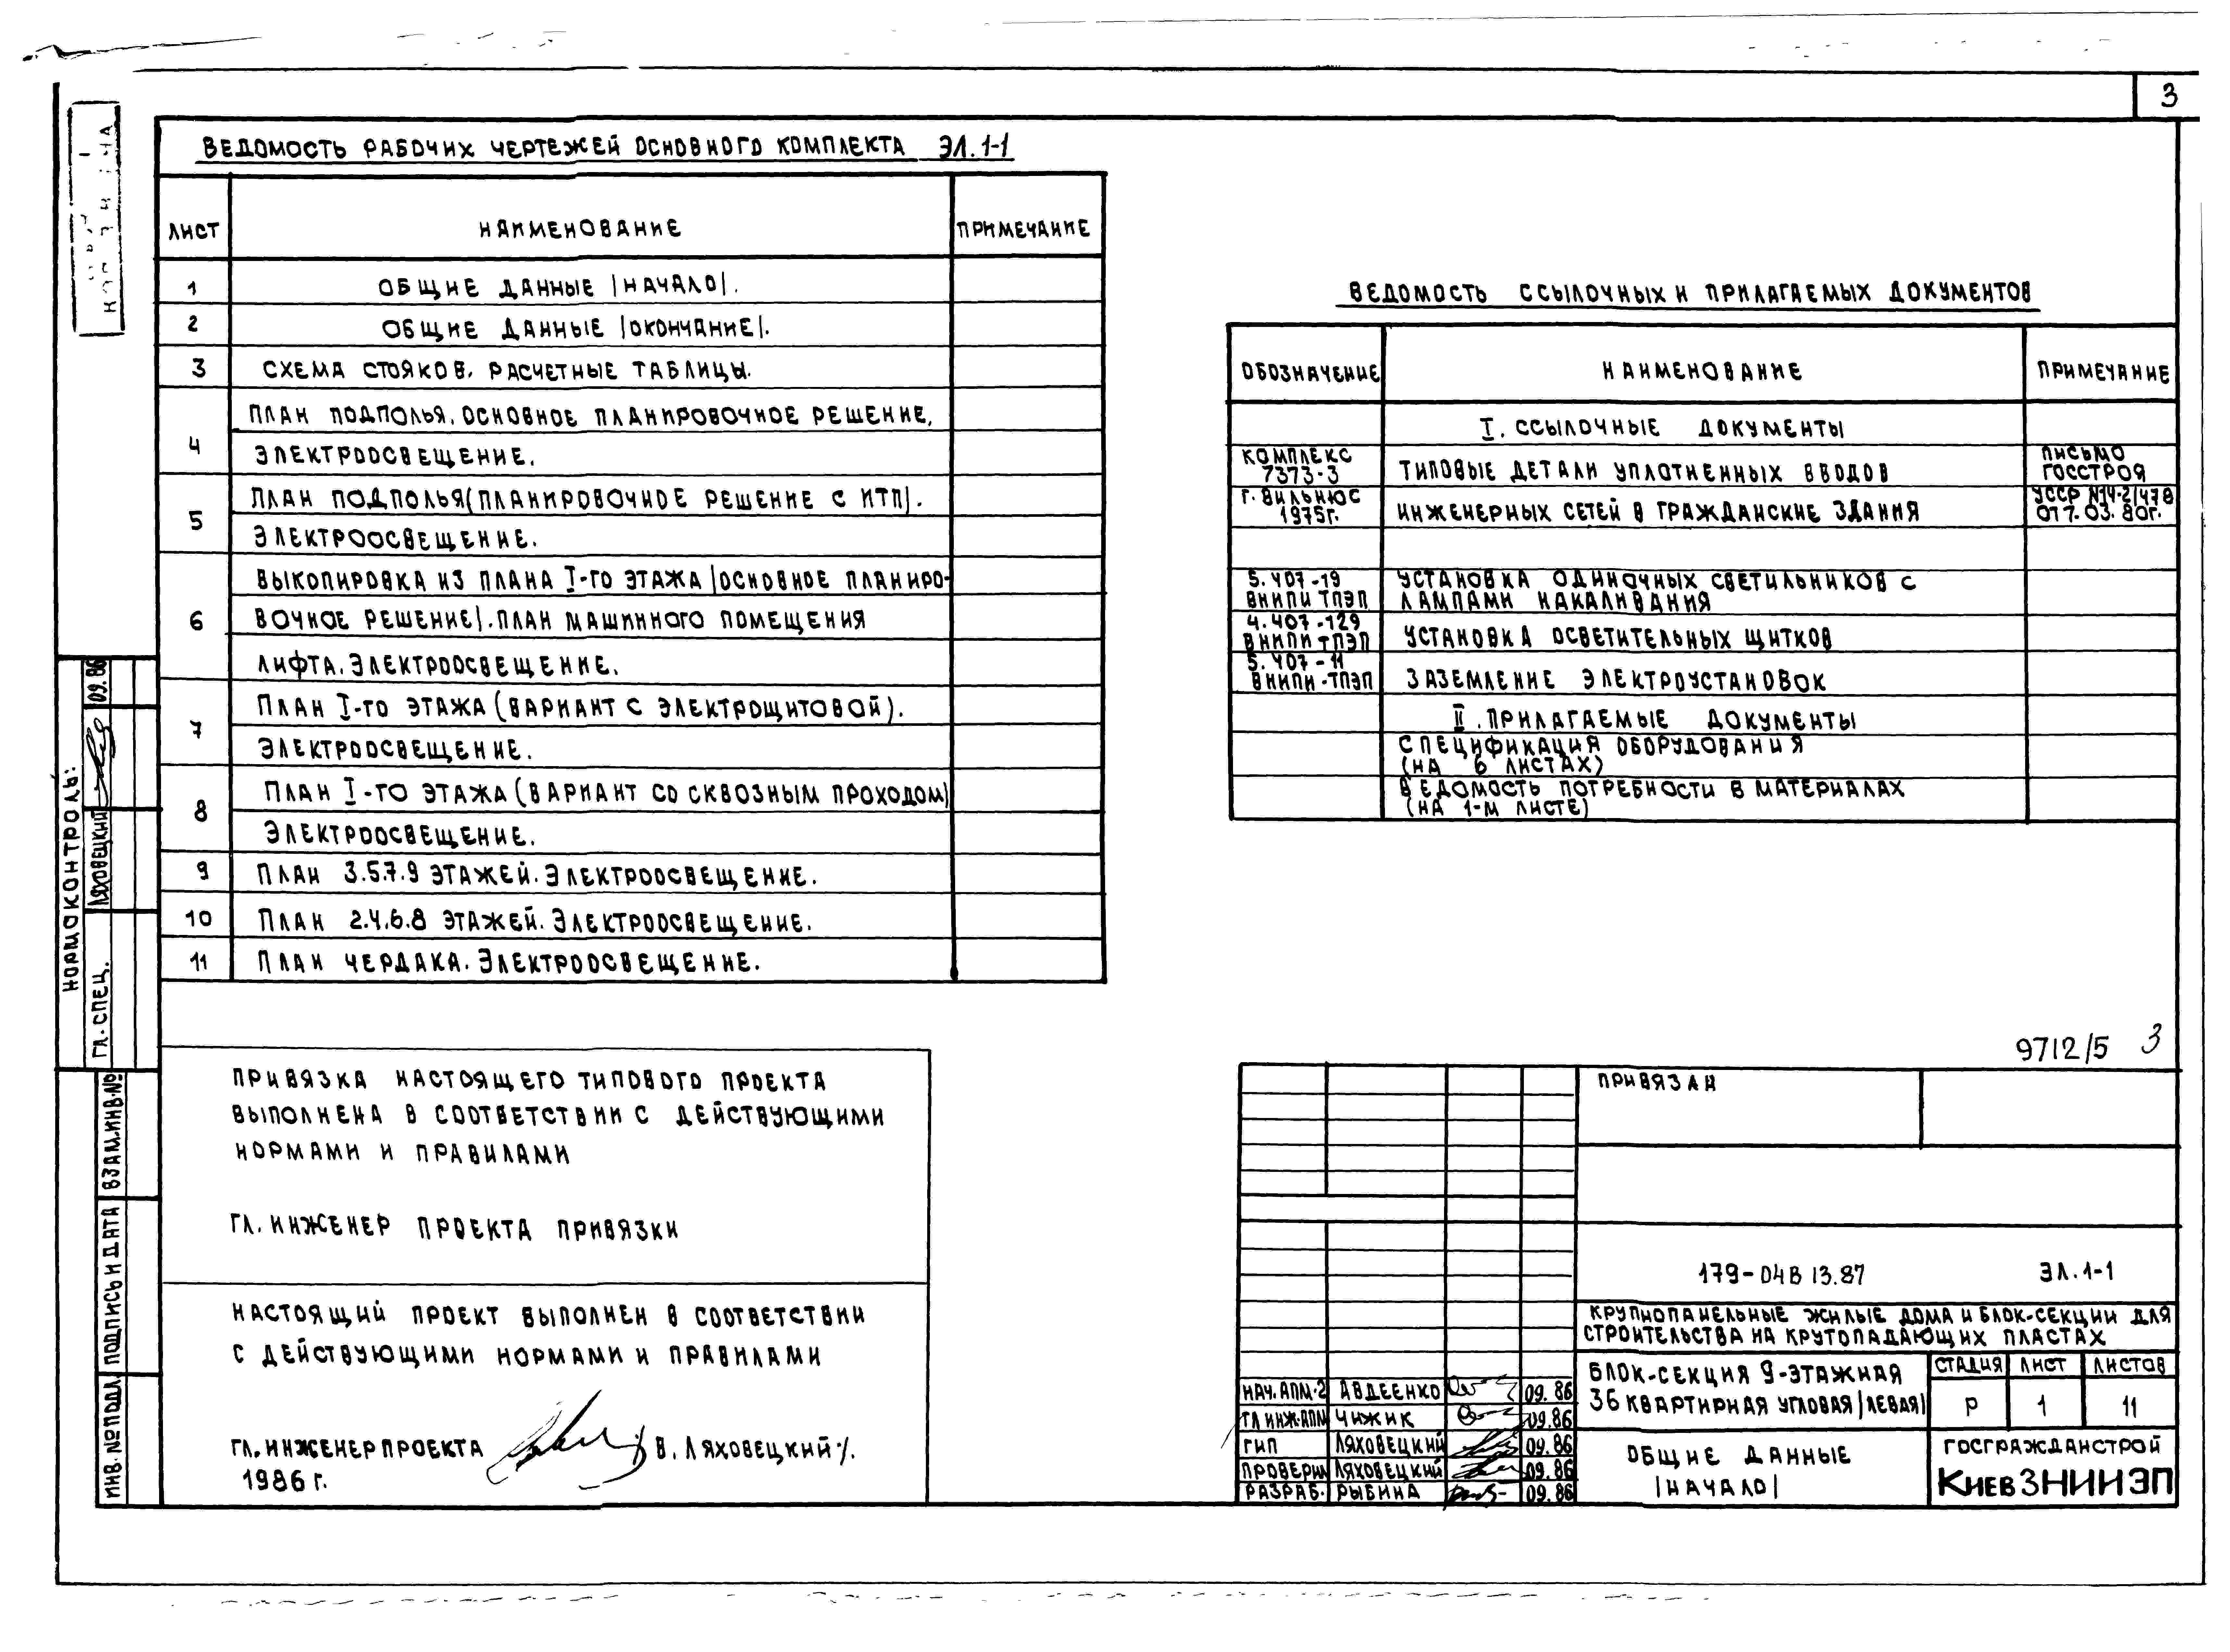 3
ВЕДОМОСТЬ РАБОЧИХ ЧЕРТЕЖЕЙ ОСНОВНОГО КОМПЛЕКТА ЭЛ.1-1
ЛИСТ НАИМЕНОВАНИЕ ПРИМЕЧАНИЕ
1 ОБЩИЕ ДАННЫЕ |НАЧАЛО|.
2 ОБЩИЕ ДАННЫЕ |ОКОНЧАНИЕ|.
3 СХЕМА СТОЯКОВ. РАСЧЕТНЫЕ ТАБЛИЦЫ.
4 ПЛАН ПОДПОЛЬЯ. ОСНОВНОЕ ПЛАНИРОВОЧНОЕ РЕШЕНИЕ,
ЭЛЕКТРООСВЕЩЕНИЕ.
5 ПЛАН ПОДПОЛЬЯ(ПЛАНИРОВОЧНОЕ РЕШЕНИЕ С ИТП).
ЭЛЕКТРООСВЕЩЕНИЕ.
6 ВЫКОПИРОВКА ИЗ ПЛАНА I-ГО ЭТАЖА |ОСНОВНОЕ ПЛАНИРО-
ВОЧНОЕ РЕШЕНИЕ|. ПЛАН МАШИННОГО ПОМЕЩЕНИЯ
ЛИФТА. ЭЛЕКТРООСВЕЩЕНИЕ.
7 ПЛАН I-ГО ЭТАЖА (ВАРИАНТ С ЭЛЕКТРОЩИТОВОЙ).
ЭЛЕКТРООСВЕЩЕНИЕ.
8 ПЛАН I-ГО ЭТАЖА (ВАРИАНТ СО СКВОЗНЫМ ПРОХОДОМ)
ЭЛЕКТРООСВЕЩЕНИЕ.
9 ПЛАН 3.5.7.9 ЭТАЖЕЙ. ЭЛЕКТРООСВЕЩЕНИЕ.
10 ПЛАН 2.4.6.8 ЭТАЖЕЙ. ЭЛЕКТРООСВЕЩЕНИЕ.
11 ПЛАН ЧЕРДАКА. ЭЛЕКТРООСВЕЩЕНИЕ.
ВЕДОМОСТЬ ССЫЛОЧНЫХ И ПРИЛАГАЕМЫХ ДОКУМЕНТОВ
ОБОЗНАЧЕНИЕ НАИМЕНОВАНИЕ ПРИМЕЧАНИЕ
I. ССЫЛОЧНЫЕ ДОКУМЕНТЫ
КОМПЛЕКС
7373-3
ТИПОВЫЕ ДЕТАЛИ УПЛОТНЕННЫХ ВВОДОВ
ПИСЬМО
ГОССТРОЯ
Г. ВИЛЬНЮС
1975г.
ИНЖЕНЕРНЫХ СЕТЕЙ В ГРАЖДАНСКИЕ ЗДАНИЯ
УССР N14-2/478
ОТ 7.03.80г.
5.407-19
ВНИПИ ТПЭП
УСТАНОВКА ОДИНОЧНЫХ СВЕТИЛЬНИКОВ С
ЛАМПАМИ НАКАЛИВАНИЯ
4.407-129
ВНИПИ ТПЭП
УСТАНОВКА ОСВЕТИТЕЛЬНЫХ ЩИТКОВ
5.407-11
ВНИПИ-ТПЭП
ЗАЗЕМЛЕНИЕ ЭЛЕКТРОУСТАНОВОК
II. ПРИЛАГАЕМЫЕ ДОКУМЕНТЫ
СПЕЦИФИКАЦИЯ ОБОРУДОВАНИЯ
(НА 6 ЛИСТАХ)
ВЕДОМОСТЬ ПОТРЕБНОСТИ В МАТЕРИАЛАХ
(НА 1-М ЛИСТЕ)
НОРМОКОНТРОЛЬ:
ГЛ. СПЕЦ. ЛЯХОВЕЦКИЙ 09.86
ВЗАМ.ИНВ.№
ПОДПИСЬ И ДАТА
ИНВ.№ПОДЛ.
ПРИВЯЗКА НАСТОЯЩЕГО ТИПОВОГО ПРОЕКТА
ВЫПОЛНЕНА В СООТВЕТСТВИИ С ДЕЙСТВУЮЩИМИ
НОРМАМИ И ПРАВИЛАМИ
ГЛ. ИНЖЕНЕР ПРОЕКТА ПРИВЯЗКИ
НАСТОЯЩИЙ ПРОЕКТ ВЫПОЛНЕН В СООТВЕТСТВИИ
С ДЕЙСТВУЮЩИМИ НОРМАМИ И ПРАВИЛАМИ
ГЛ. ИНЖЕНЕР ПРОЕКТА /В. ЛЯХОВЕЦКИЙ/.
1986 г.
9712/5 3
ПРИВЯЗАН
179-04В 13.87 ЭЛ.1-1
КРУПНОПАНЕЛЬНЫЕ ЖИЛЫЕ ДОМА И БЛОК-СЕКЦИИ ДЛЯ
СТРОИТЕЛЬСТВА НА КРУТОПАДАЮЩИХ ПЛАСТАХ
БЛОК-СЕКЦИЯ 9-ЭТАЖНАЯ
36 КВАРТИРНАЯ УГЛОВАЯ |ЛЕВАЯ|
СТАДИЯ ЛИСТ ЛИСТОВ
Р 1 11
НАЧ. АПМ-2 АВДЕЕНКО 09.86
ГЛ ИНЖ.АПМ ЧИЖИК 09.86
ГИП ЛЯХОВЕЦКИЙ 09.86
ПРОВЕРИЛ ЛЯХОВЕЦКИЙ 09.86
РАЗРАБ. РЫБИНА 09.86
ОБЩИЕ ДАННЫЕ
|НАЧАЛО|
ГОСГРАЖДАНСТРОЙ
КиевЗНИИЭП